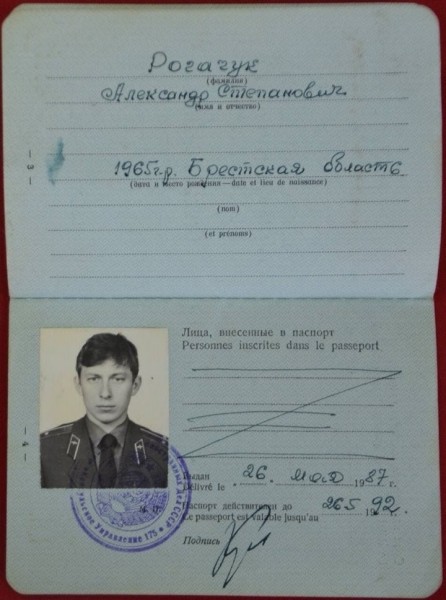 Рогачук
(фамилия)
Александр Степанович
(имя и отчество)
— 3 —
1965г.р. Брестская область
(дата и место рождения—date et lieu de naissance)
(nom)
(et prénoms)
Лица, внесенные в паспорт
Personnes inscrites dans le passeport
— 4 —
Выдан 26 мая 1987 г.
Délivré le
Паспорт действителен до 26 5 1992 г.
Ce passeport est valable jusqu'au
Подпись
Управление 175 *
Дел СССР